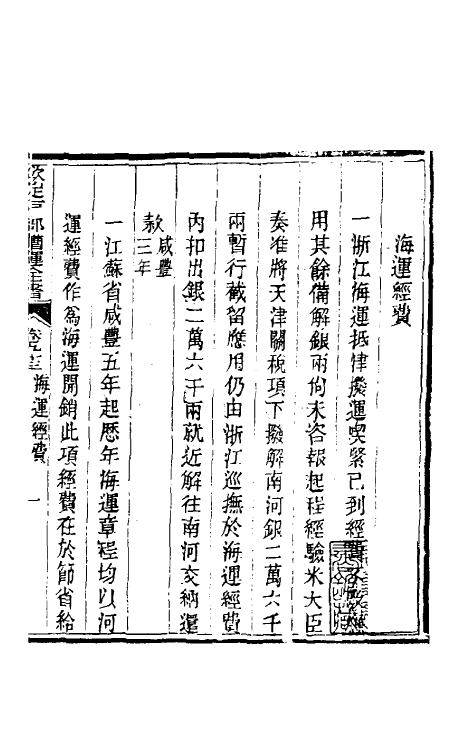 海運經費
一浙江海運抵津撥運喫緊已到經費不敷
用其餘備解銀兩尙未咨報起程經驗米大臣
奏准將天津關稅項下撥解南河銀二萬六千
兩暫行截留應用仍由浙江巡撫於海運經費
內扣出銀二萬六千兩就近解往南河交納還
款咸豐三年
一江蘇省咸豐五年起歷年海運章程均以河
運經費作為海運開銷此項經費在於節省給
欽定戶部漕運全書 卷九十三 海運經費 一